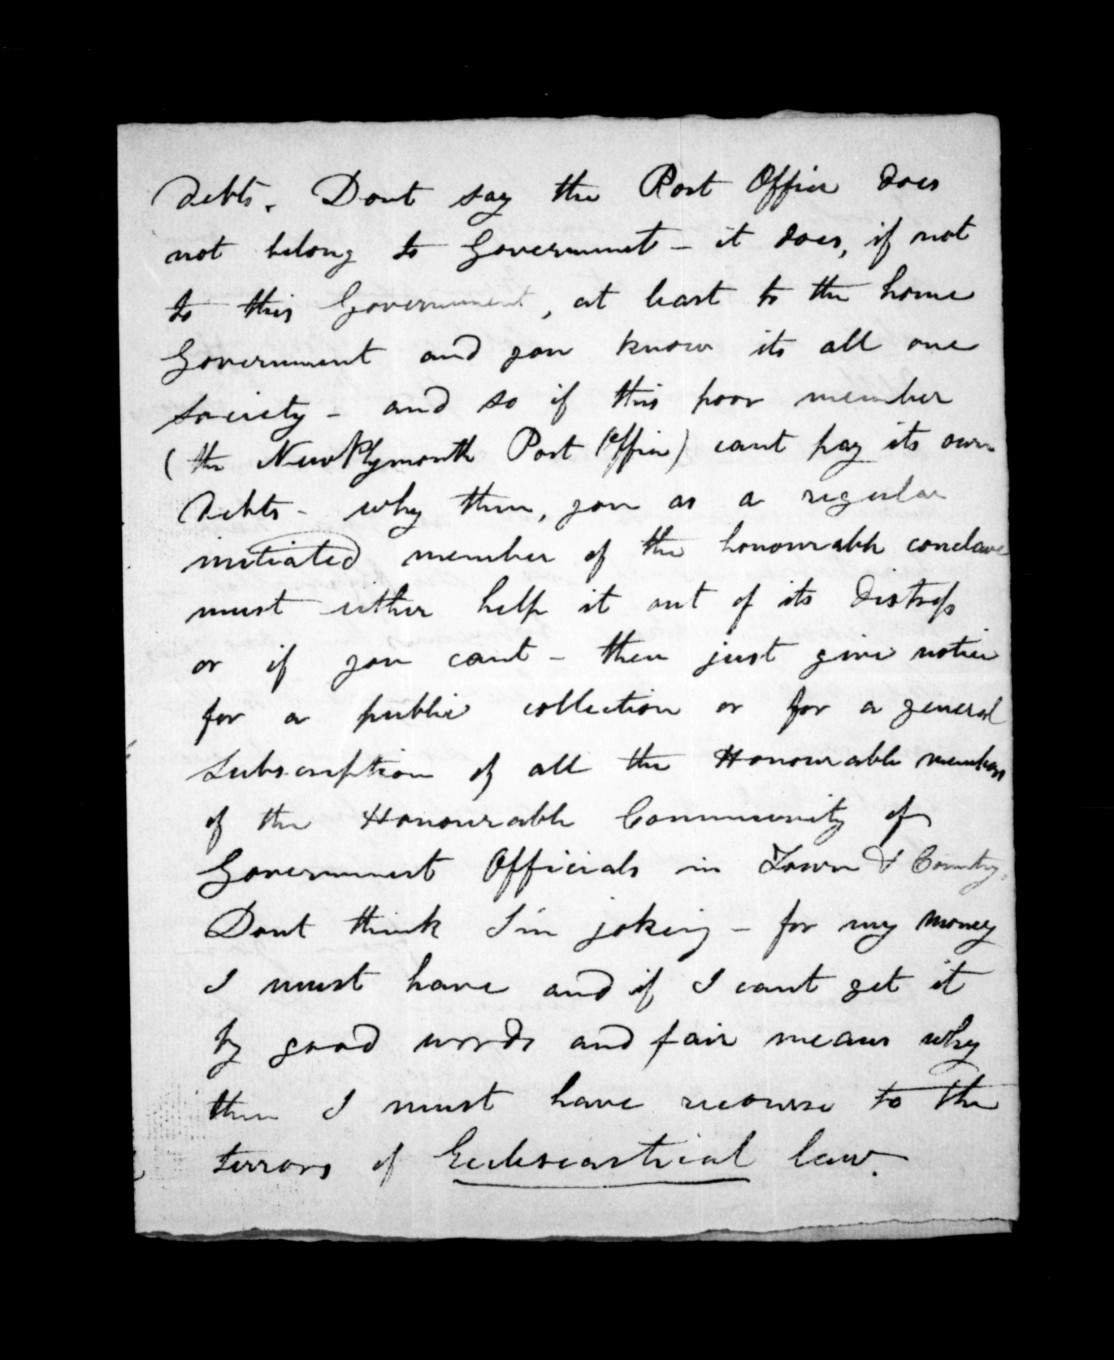 debts. Dont say the Post Office does
not belong to Government - it does, if not
to this Government, at least to the home
Government and you know its all one
Society - and so if this poor member
(the New Plymouth Post Office) cant pay its own
debts - why then, you as a regular
initiated member of the honourable conclave
must either help it out of its distress
or if you cant - then just give notice
for a public collection or for a general
subscription of all the Honourable members
of the Honourable Community of
Government Officials in Town & Country.
Dont think I'm joking - for my money
I must have and if I cant get it
by good words and fair means why
then I must have recourse to the
terrors of Ecclesiastical law.